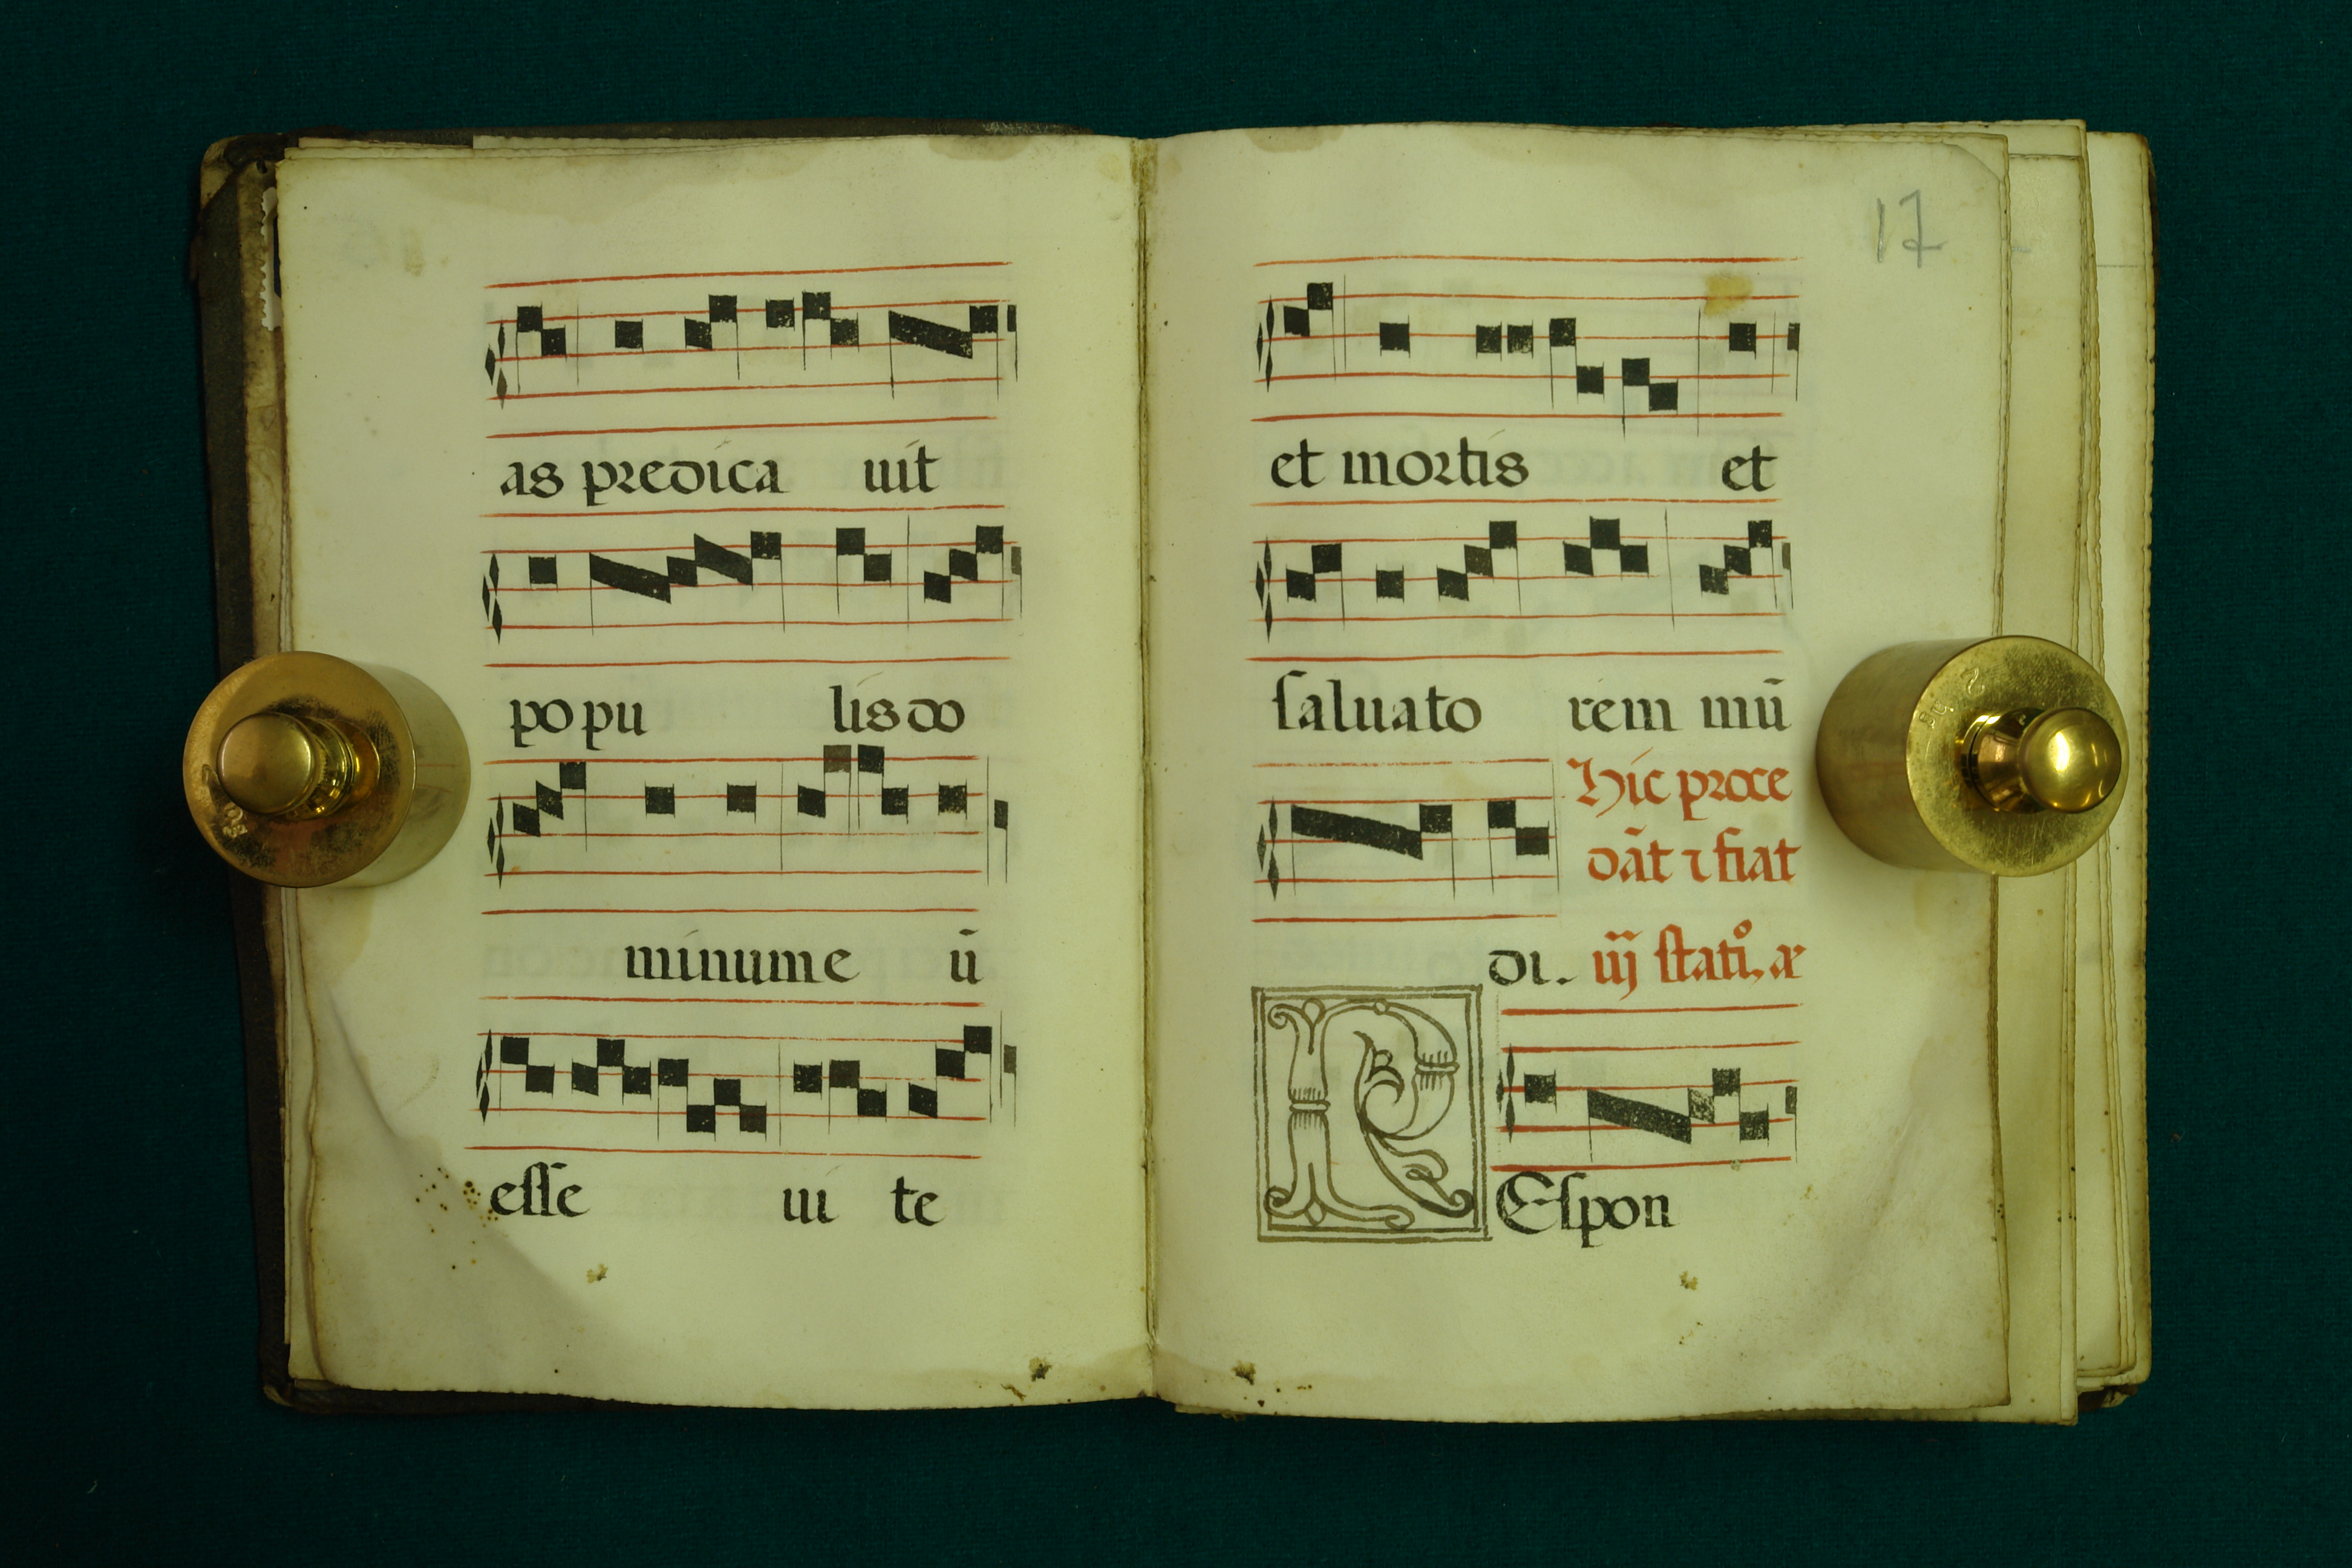 as predica uit
po pu lis do
minum e ū
esse ui te
17
et mortis et
saluato rem mū
Hic proce
dāt ⁊ fiat
di. iij statiº, æ
R Espon